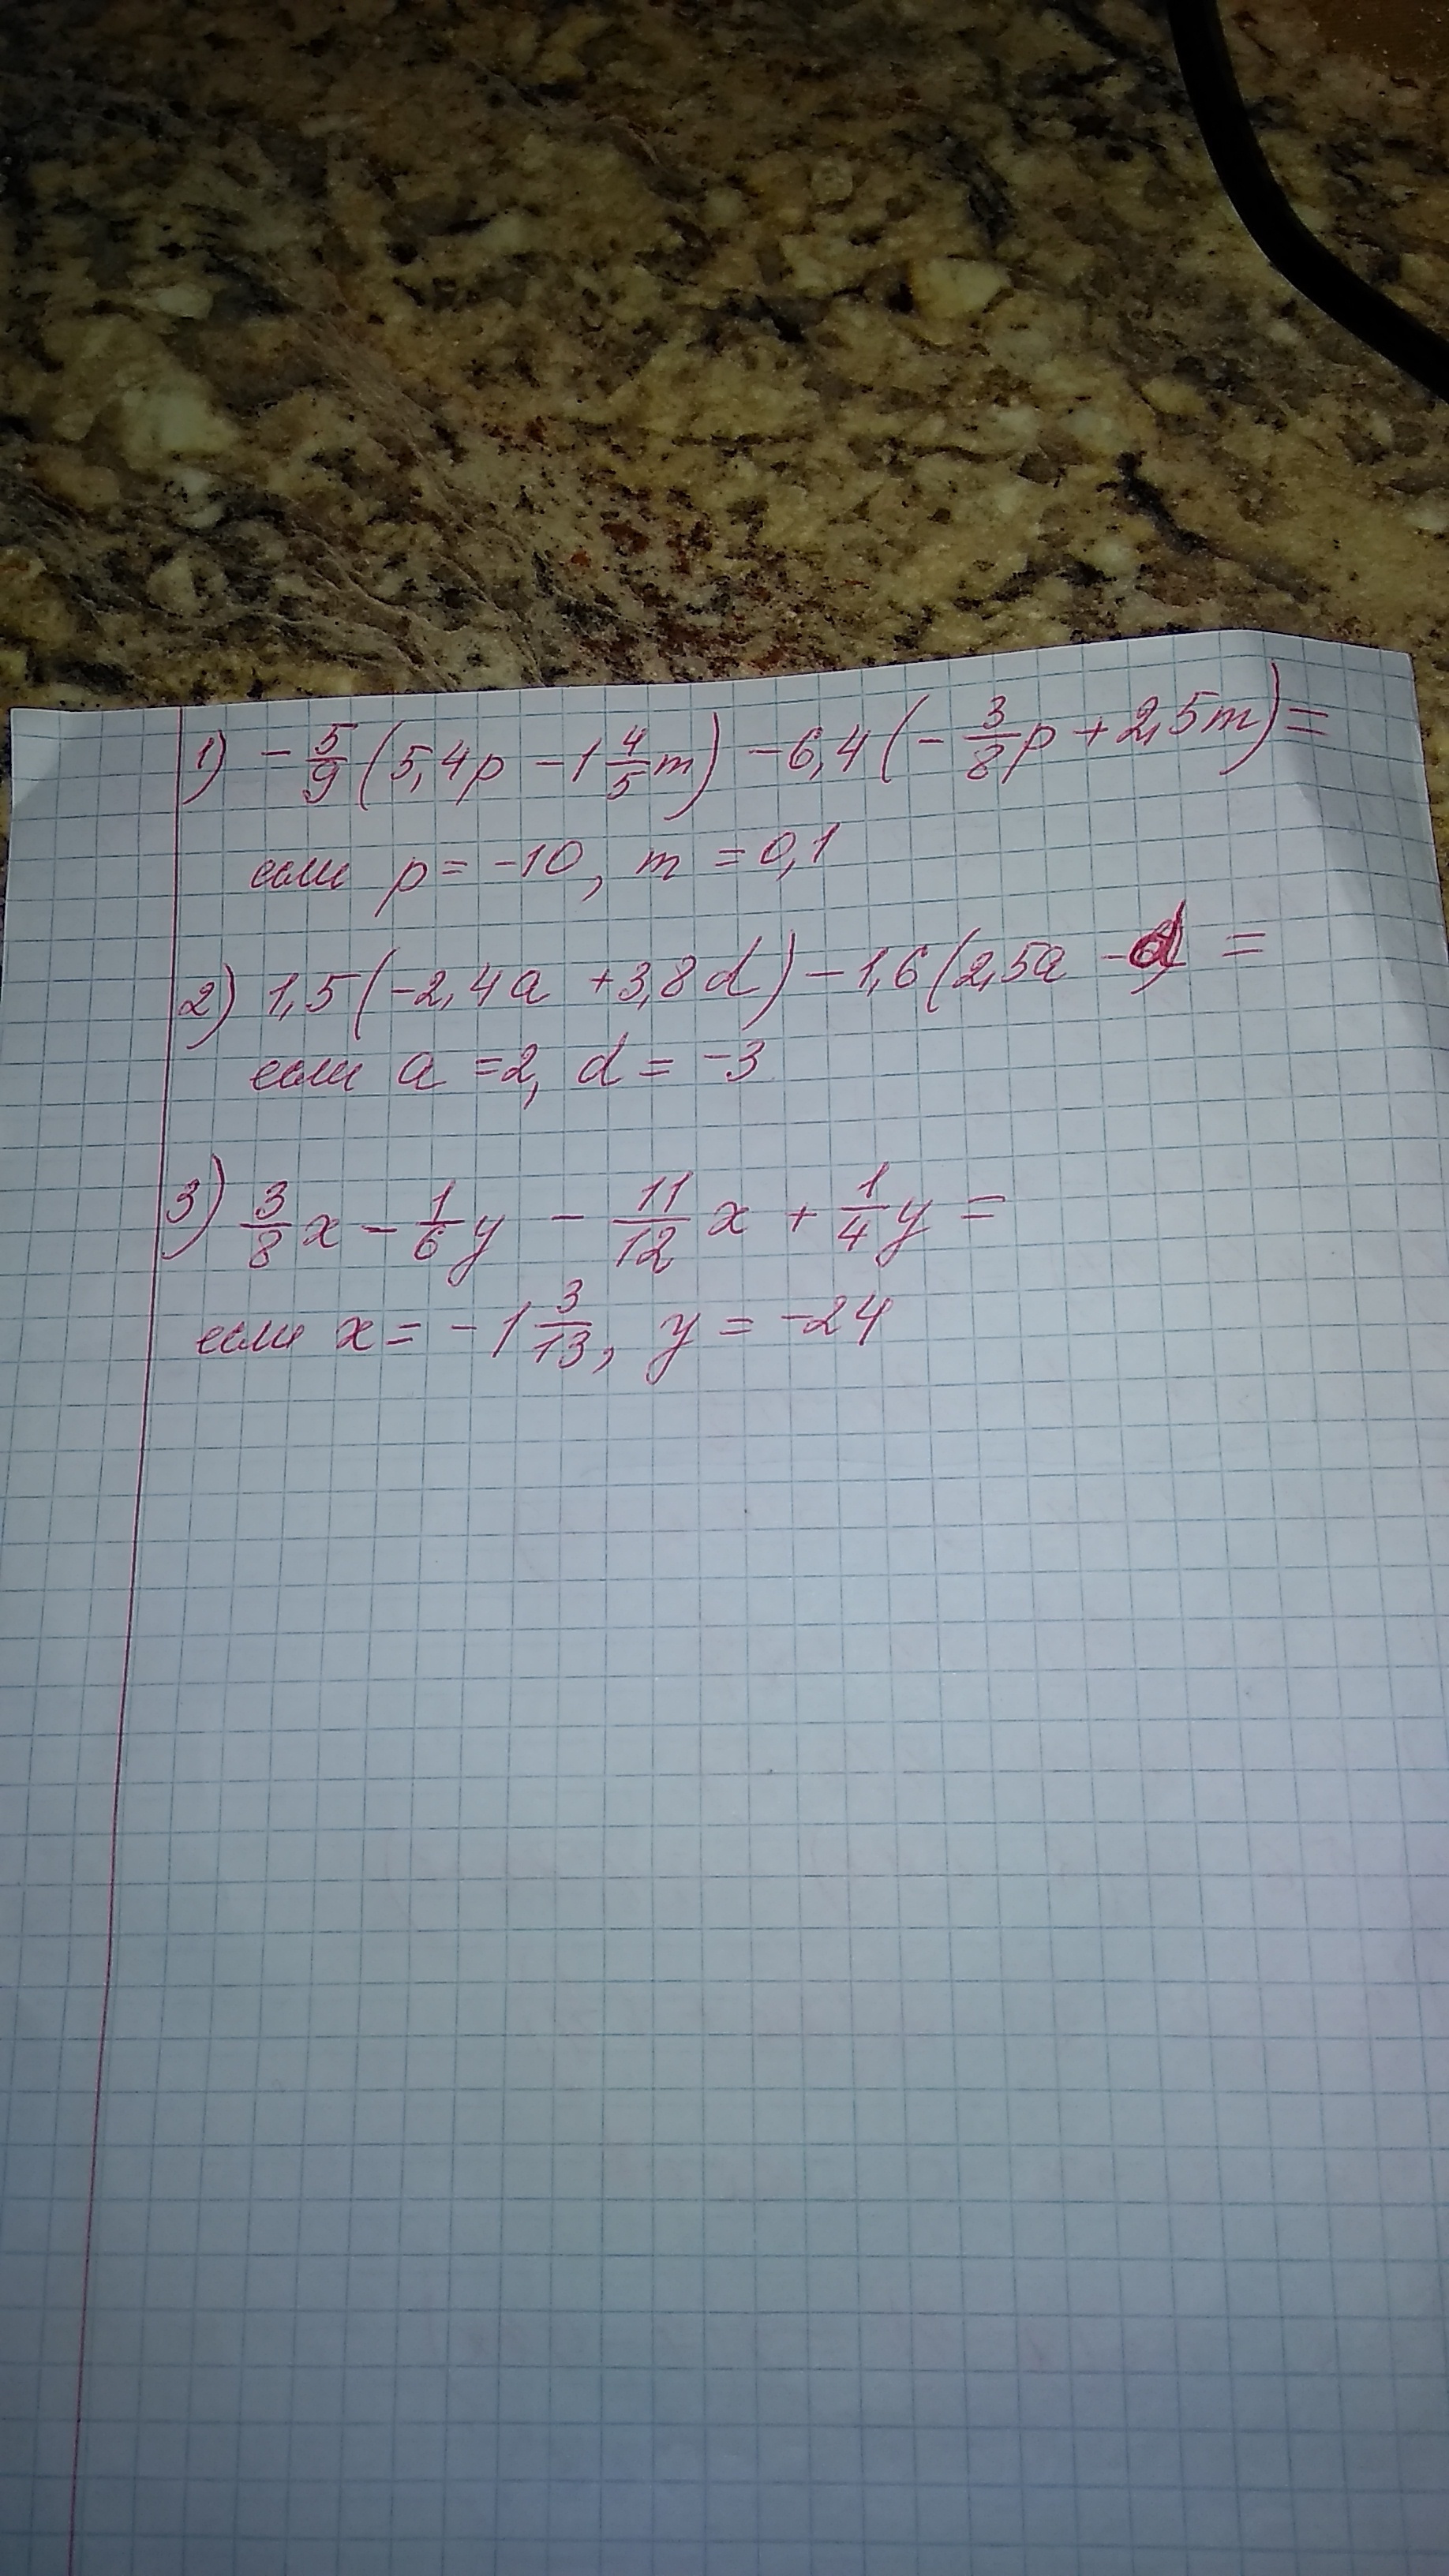 1) - 5/9 (5,4p - 1 4/5 m) - 6,4 (- 3/8 p + 2,5m) =
если p = -10, m = 0,1
2) 1,5 (-2,4a + 3,8d) - 1,6 (2,5a - d) =
если a = 2, d = -3
3) 3/8 x - 1/6 y - 11/12 x + 1/4 y =
если x = -1 3/13, y = -24